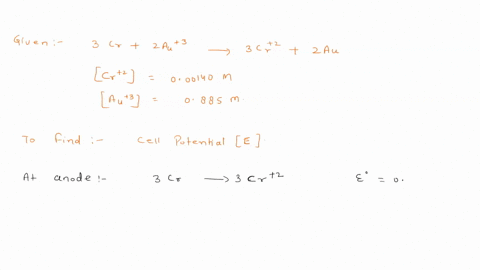 Given :- 3 Cr + 2Au⁺³ → 3Cr⁺² + 2Au
[Cr⁺²] = 0.00140 M
[Au⁺³] = 0.885 M.
To find :- Cell Potential [E].
At anode :- 3 Cr → 3 Cr⁺² ε° = 0.